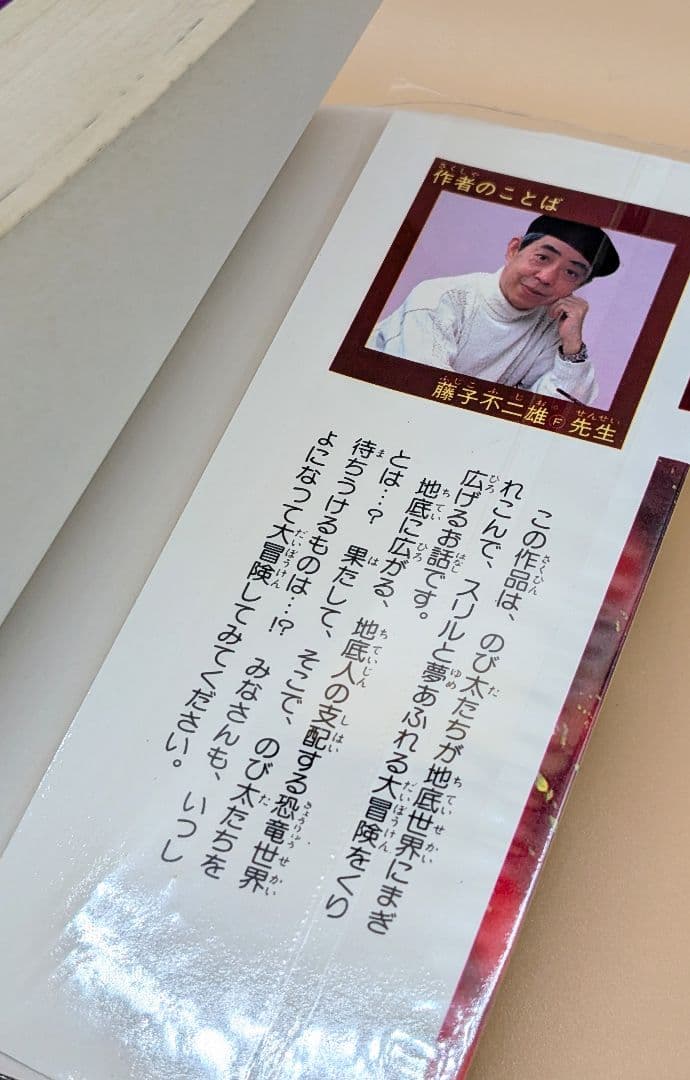 作者のことば
藤子不二雄Ⓕ先生
この作品は、のび太たちが地底世界にまぎ
れこんで、スリルと夢あふれる大冒険をくり
広げるお話です。
地底に広がる、地底人の支配する恐竜世界
とは…? 果たして、そこで、のび太たちを
待ちうけるものは…!? みなさんも、いっし
ょになって大冒険してみてください。